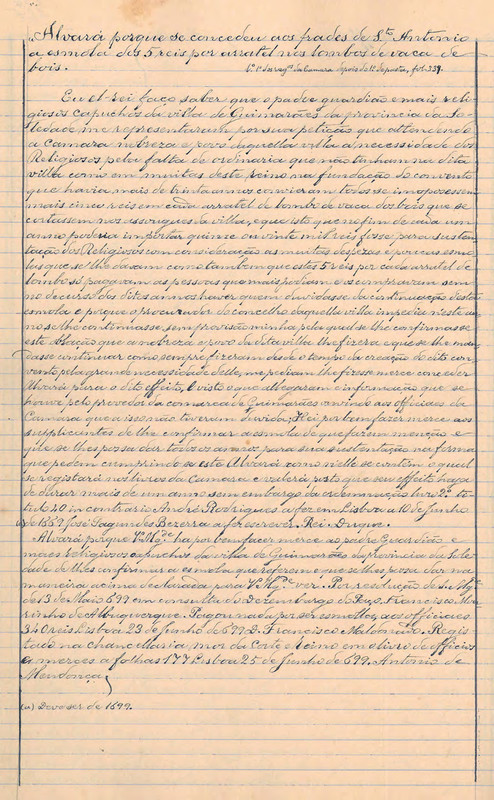 Alvará porque se concedeu aos frades de Sto Antonio
a esmola dos 5 reis por arratel nos lombos de vaca de
bois. fol. 339.
Eu el-rei faço saber que o padre guardião e mais reli-
giosos capuchos da villa de Guimarães da provincia da So-
ledade, me representaram por sua petição que attendendo
a Camara nobreza e povo daquella villa a necessidade dos
Religiosos pela falta de ordinaria que não tinham na dita
villa como em muitas deste reino na fundação do convento
que havia mais de trinta annos convieram todos se impozessem
mais cinco reis em cada arratel de lombo de vaca dos bois que se
cortassem nos assougues da villa, e que isto que no fim de cada um
anno poderia importar quinze ou vinte mil reis fosse para susten-
tação dos Religiosos com consideração as muitas despezas e poucas esmo-
las que se lhe davam como tambem que estes 5 reis por cada arratel de
lombo só pagavam as pessoas que mais podiam e os compravam sem
no decurso dos ditos annos haver quem duvidasse da continuação desta
esmola e porque o procurador do concelho daquella villa impedia neste an-
no se lhe continuasse, sem provisão minha pela qual se lhe confirmasse
este oblação que a nobreza e povo da dita villa lhe fizera e que se lhe man-
dasse continuar como sempre fizeram desde o tempo da creação do dito con-
vento pela grande necessidade delle, me pediam lhe fizesse merce conceder
Alvará para o dito effeito. E visto o que allegaram e informação que se
houve pelo provedor da comarca de Guimarães ouvindo os officiaes da
Camara que a isso não tiveram duvida; Hei por bem fazer merce aos
supplicantes de lhe confirmar a esmola de que fazem menção e
que se lhes possa dar todos os annos para sua sustentação na forma
que pedem cumprindo-se este Alvará como nelle se contém o qual
se registará nos livros da Camara e valerá posto que seu effeito haja
de durar mais de um anno sem embargo da ordenação livro 2º ti-
tulo 40 em contrario André Rodrigues a fez em Lisboa a 10 de Junho
(a) de 1669 José Fagundes Bezerra a fez escrever. Rei. Duque.
Alvará porque V. Mgde ha por bem fazer merce ao padre Guardião e
mais religiosos capuchos da villa de Guimarães da provincia da Sole-
dade de lhes confirmar a esmola que referem e que se lhes possa dar na
maneira acima declarada para V. Mgde ver. Por resolução de S. Mgde
de 13 de Maio 699 em consulta do Dezembargo do Paço. Francisco Ma-
rinho de Albuquerque. Pagou nada por ser esmolla, aos officiaes
340 reis Lisboa 23 de Junho de 699 D. Francisco Maldonado. Regis-
tado na Chancellaria mor da Corte e Reino em o livro de officios
e merces a folhas 177 Lisboa 25 de Junho de 699. Antonio de
Mendonça
(a) Deve ser de 1699.